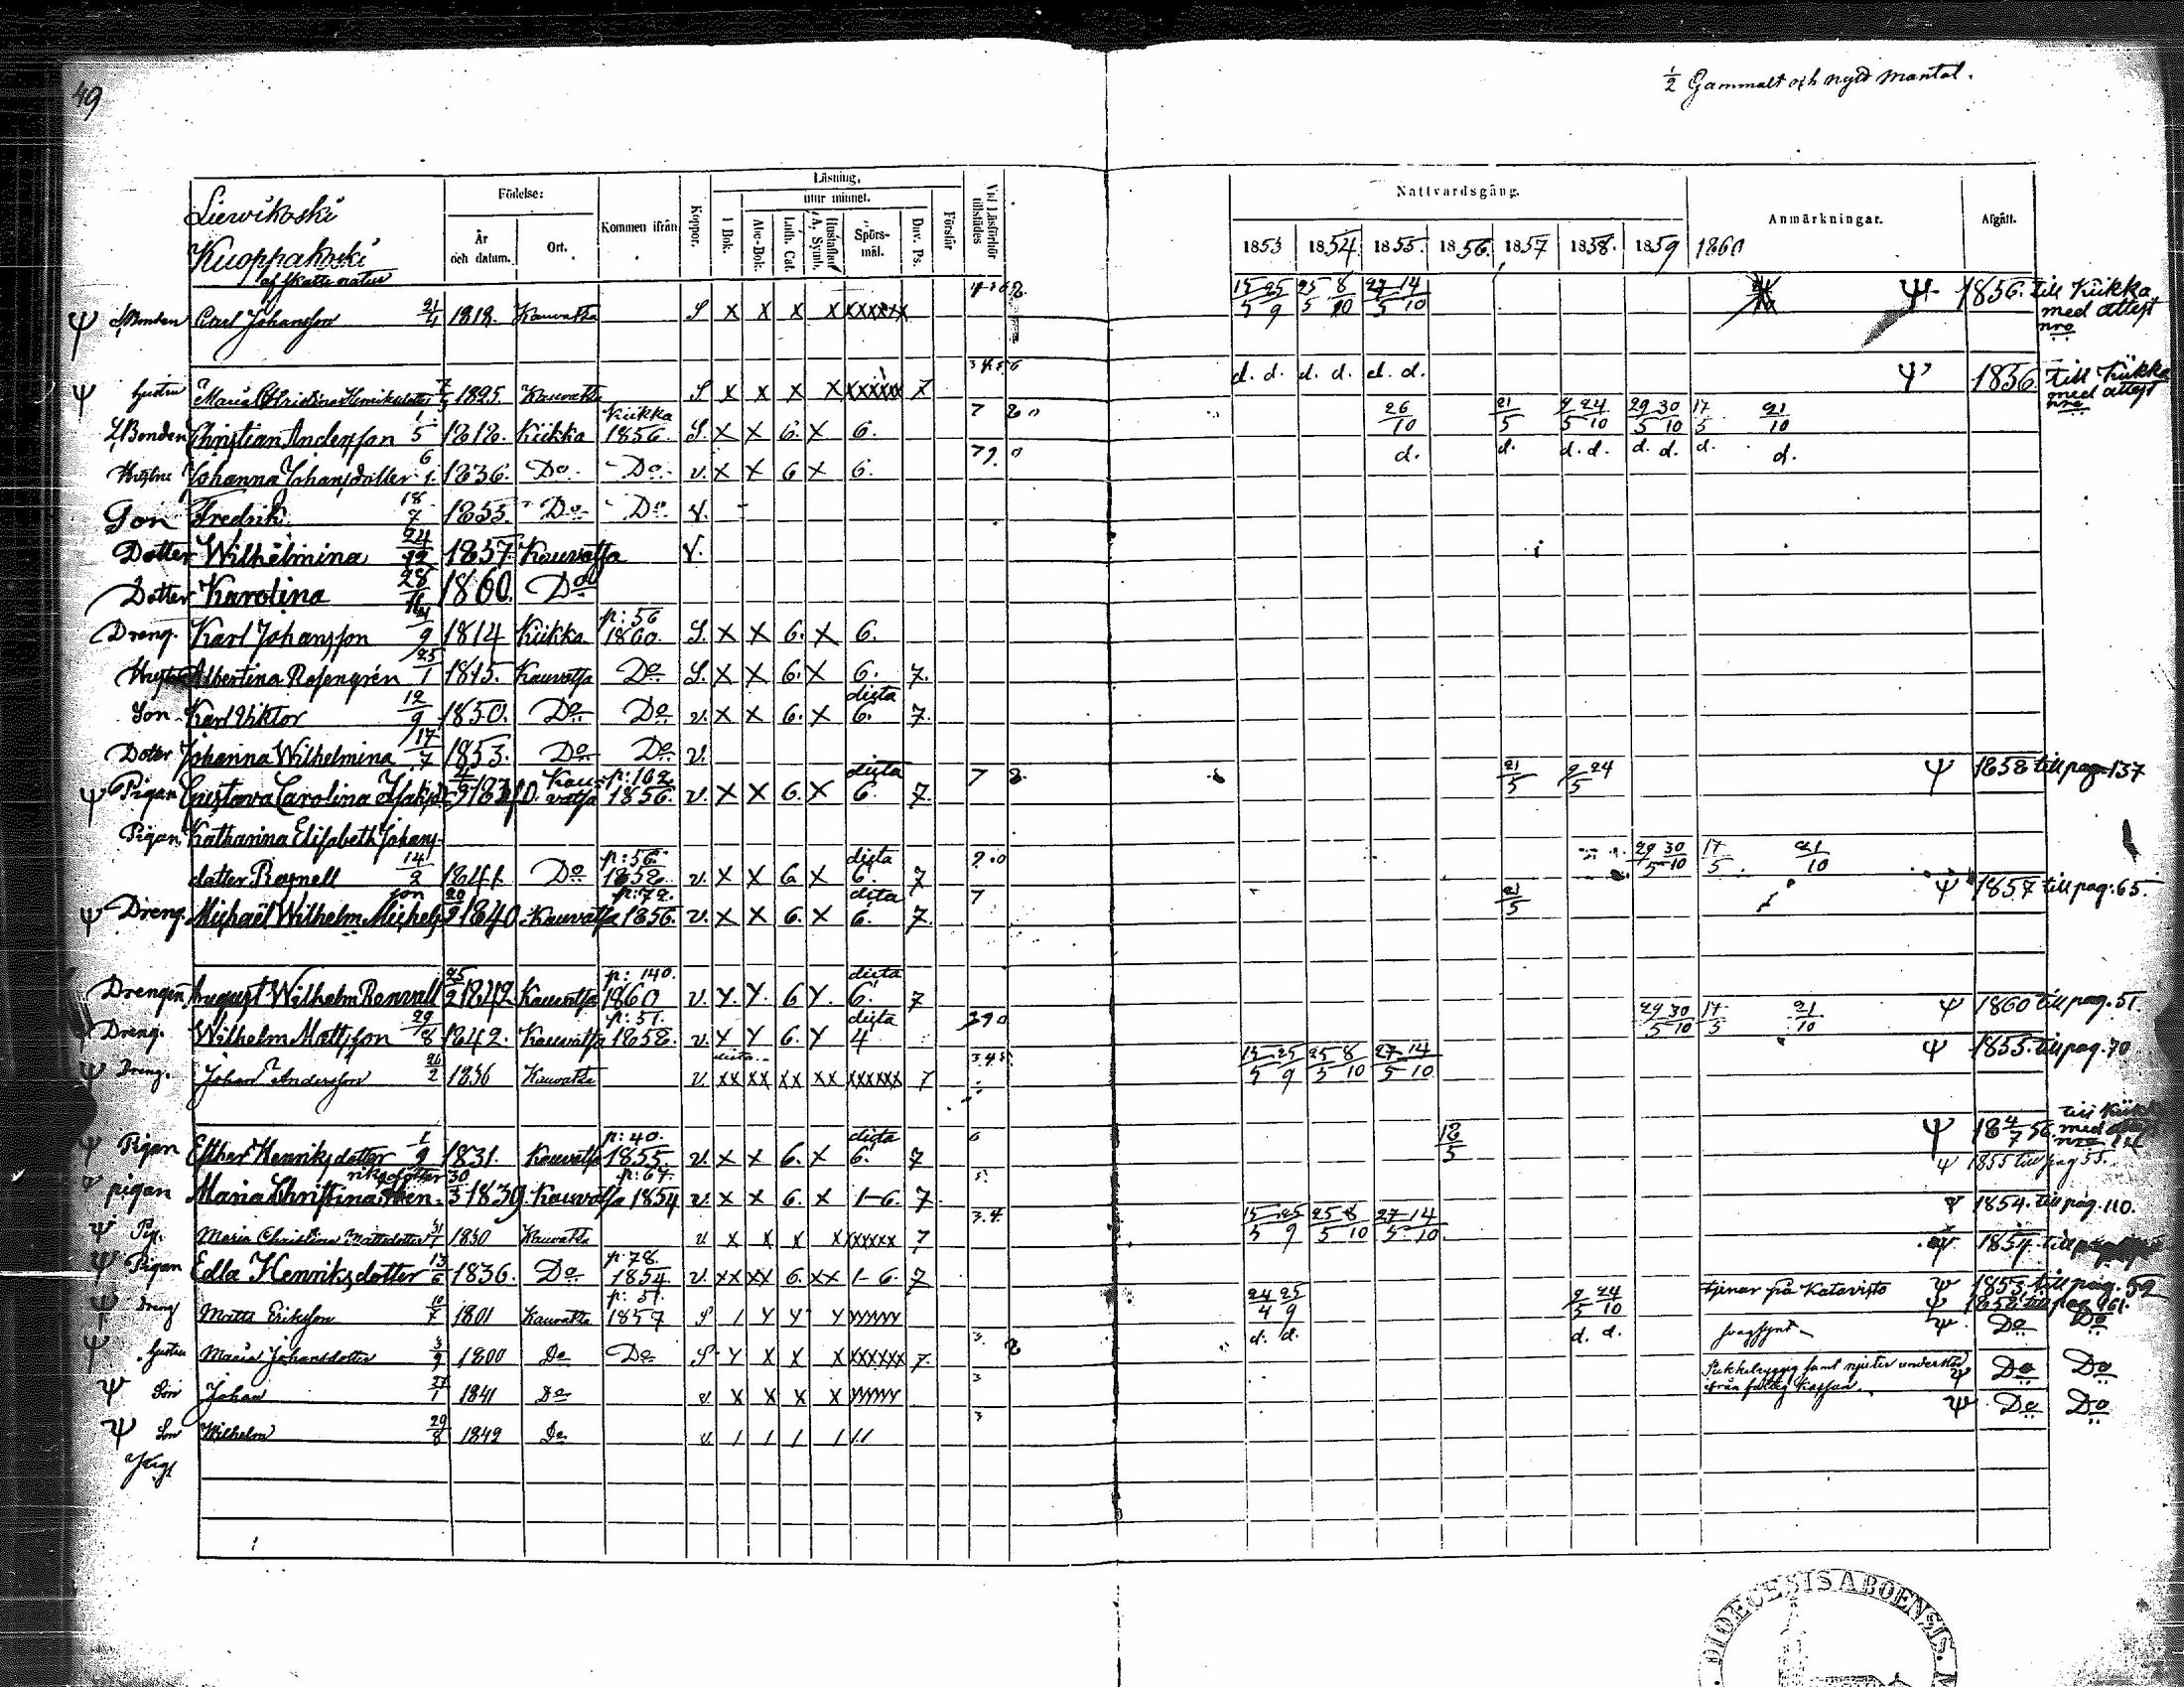 49
1/2 Gammalt och nytt mantal.
Lievikoski
Kuoppakoski
af skatte natur
Födelse:
År och datum.
Ort.
Kommen ifrån
Koppor.
Läsning,
utur minnet.
I Bok.
Abc-Bok.
Luth. Cat.
Hustaflan A. Symb.
Spörsmål.
Dav. Ps.
Förstår
Vid Läsförhör tillstädes
Nattvardsgång.
1853 1854. 1855. 1856. 1857 1858. 1859 1860
Anmärkningar.
Afgått.
Ψ Bonden Carl Johansson 21/4 1818. Kauvatsa S X X X X XXXXXX 15/5 25/9 25/5 8/10 27/5 14/10 Ψ 1856. till Kiikka med attest nro
Ψ hustru Maria Christina Henriksdotter 1825. Kauvatsa S X X X X XXXXXX 7 3 4 5 6 d. d. d. d. d. d. Ψ 1856. till Kiikka med attest nro
Bonden Christian Andersson 1/5 1818. Kiikka Kiikka 1856. S. X X 6. X 6. 26/10 21/5 9/5 24/10 29/5 30/10 17/5 21/10
Hustru Johanna Johansdotter 6/1. 1836. Do. Do. v. X X 6 X 6. d. d. d. d. d. d. d. d.
Son Fredrik 18/7 1855. Do Do v.
Dotter Wilhelmina 24/12 1857. Kauvatsa v.
Dotter Karolina 28/11 1860. Do
Dreng. Karl Johansson /9 1814 Kiikka p: 56 1860. S. X X 6. X 6.
Hustru Albertina Rosengrén 25/1 1815. Kauvatsa Do S. X X 6. X 6. 7.
Son Karl Viktor 12/9 1850. Do Do v. X X 6. X dicta 6. 7.
Dotter Johanna Wilhelmina 17/7 1853. Do Do v.
Ψ Pigan Gustava Carolina Kauvatsa p: 102. 1856. v. X X 6. X dicta 6. 7. 7 8. 21/5 9/5 24 Ψ 1858 till pag 137
Pigan Katharina Elisabeth Johans-
dotter Ragnell 14/2 1841. Do p: 56. 1858. v. X X 6 X dicta 6. 7 29/5 30/10 17/5 21/10
Ψ Dreng. Michaël Wilhelm Michels son 20/9 1840. Kauvatsa p: 72. 1856. v. X X 6. X dicta 6. 7. 7 21/5 Ψ 1857 till pag: 65.
Drengen August Wilhelm Ronvall 25/2 1842 Kauvatsa p: 140. 1860 v. Y. Y. 6 Y. dicta 6. 7
Dreng. Wilhelm Mattsson 29/8 1842. Kauvatsa p: 51. 1858. v. Y Y 6. Y dicta 4 29/5 30/10 17/5 21/10 Ψ 1860 till pag. 51.
Ψ Dreng. Johan Andersson 26/2 1836 Kauvatsa v XX XX XX XX XXXXXX 7 3.4.5. 15/5 25/9 25/5 8/10 27/5 14/10 Ψ 1855. till pag. 70
Ψ Pigan Esther Henriksdotter 1/9 1831. Kauvatsa p: 40. 1855 v. X X 6. X dicta 6. 7 6 18/5 Ψ 18 4/7 56. till Kiikka med
pigan Maria Christina Hen- riksdotter 30/3 1839. Kauvatsa p: 67. 1854 v. X X 6. X 1-6. 7. 5. Ψ 1855 till pag 55.
Ψ Pig. Maria Christina Mattsdotter 31/1 1830 Kauvatsa v X X X X XXXXXX 7 3.4. 15/5 25/9 25/5 8/10 27/5 14/10 Ψ 1854. till pag. 110.
Ψ Pigan Edla Henriksdotter 13/6 1836. Do p: 78. 1854. v. XX XX 6. XX 1-6. 7 Ψ 1854. till
Ψ Dreng Matts Eriksson 10/7 1801 Kauvatsa p: 51. 1857 S / Y Y Y YYYYY 24/4 25/9 9/5 24/10 tjenar på Katavisto Ψ 1853. till pag. 52
Ψ 1858 till pag 161.
Ψ hustru Maria Johansdotter 3/9 1800 Do Do S Y X X X XXXXXX 7. 3. 2 d. d. d. d. svagsynt Ψ Do Do
Ψ Son Johan 27/1 1841 Do v. X X X X YYYYY 3 Puckelryggig samt njuter understöd ifrån fattig kassan. Ψ Do Do
Ψ Son Wilhelm 29/8 1842 Do v. / / / / // 3 Ψ Do Do
DIOECESIS ABOENSIS.